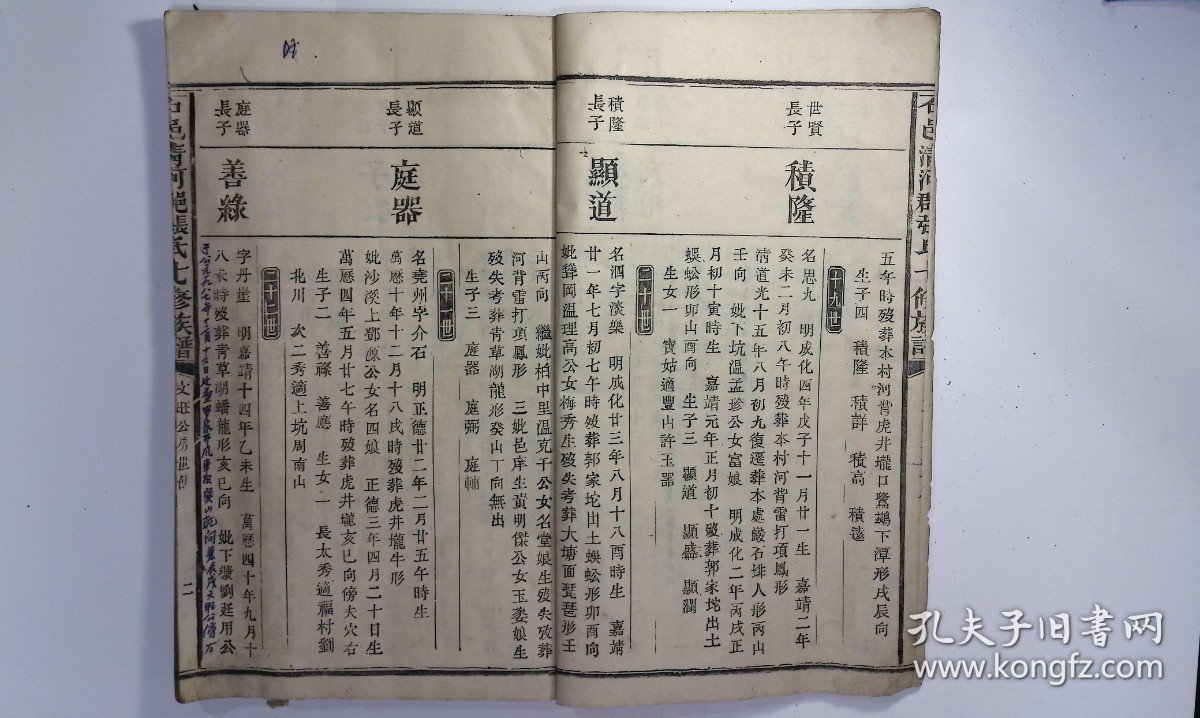 五年時歿葬本村河背虎井壠口鷺鷀下潭形戌辰向
生子四 積隆 積詳 積高 積遠
十九世
世賢
長子
積隆
名思九 明成化四年戊子十一月廿一生 嘉靖二年
癸未二月初八午時歿葬本村河背雷打項鳳形
清道光十五年八月初九復遷葬本處嚴石排人形丙山
壬向 妣下坑温孟珍公女富娘 明成化二年丙戌正
月初十寅時生 嘉靖元年正月初十歿葬郭家坨出土
蜈蚣形卯山酉向 生子三 顯道 顯盛 顯瀾
生女一 寶姑適豐山許玉器
二十世
積隆
長子
顯道
名泗字淡樂 明成化廿三年八月十八酉時生 嘉靖
廿一年七月初七午時歿葬郭家坨出土蜈蚣形卯酉向
妣聳岡温理高公女梅秀生歿失考葬大塘面琵琶形壬
山丙向 繼妣柏中里温克干公女名堂娘生歿失攷葬
河背雷打項鳳形 三妣邑庠生黃明傑公女玉娄娘生
歿失考葬青草湖龍形癸山丁向無出
生子三 庭器 庭弼 庭輔
二十一世
顯道
長子
庭器
名堯州字介石 明正德廿二年二月廿五午時生
萬歷十年十二月十八戌時歿葬虎井壠牛形
妣沙淡上鄧源公女名四娘 正德三年四月二十日生
萬歷四年五月廿七午時歿葬虎井壠亥巳向傍夫穴右
生子二 善祿 善應 生女一 長太秀適福村劉
北川 次二秀適上坑周南山
二十二世
庭器
長子
善綠
字丹崖 明嘉靖十四年乙未生 萬歷四十年九月十
八未時歿葬青草湖蟠龍形亥巳向 妣下漿劉廷用公
石邑清河郡張氏七修族譜